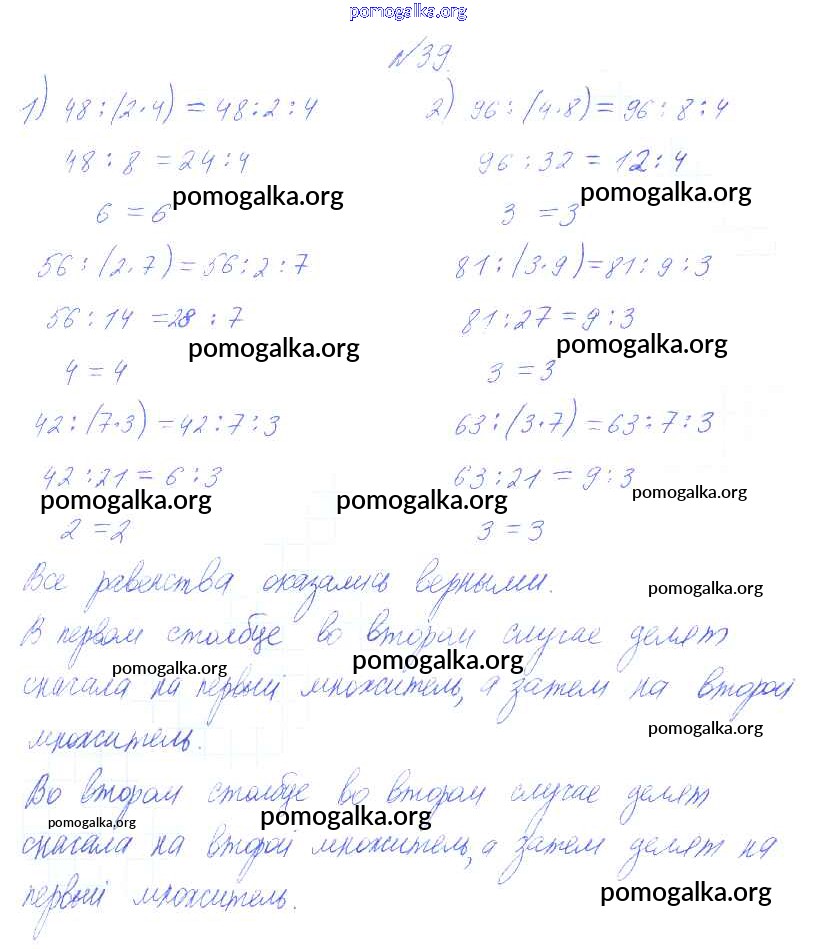 pomogalka.org
№39.
1) 48:(2·4) = 48:2:4
48:8 = 24:4
6 = 6 pomogalka.org
56:(2·7) = 56:2:7
56:14 = 28:7
pomogalka.org
4 = 4
42:(7·3) = 42:7:3
42:21 = 6:3
pomogalka.org
2 = 2
2) 96:(4·8) = 96:8:4
96:32 = 12:4
3 = 3 pomogalka.org
81:(3·9) = 81:9:3
81:27 = 9:3
pomogalka.org
3 = 3
63:(3·7) = 63:7:3
63:21 = 9:3 pomogalka.org
pomogalka.org
3 = 3
Все равенства оказались верными. pomogalka.org
В первом столбце во втором случае делят
pomogalka.org pomogalka.org
сначала на первый множитель, а затем на второй
множитель. pomogalka.org
Во втором столбце во втором случае делят
pomogalka.org pomogalka.org
сначала на второй множитель, а затем делят на
первый множитель. pomogalka.org